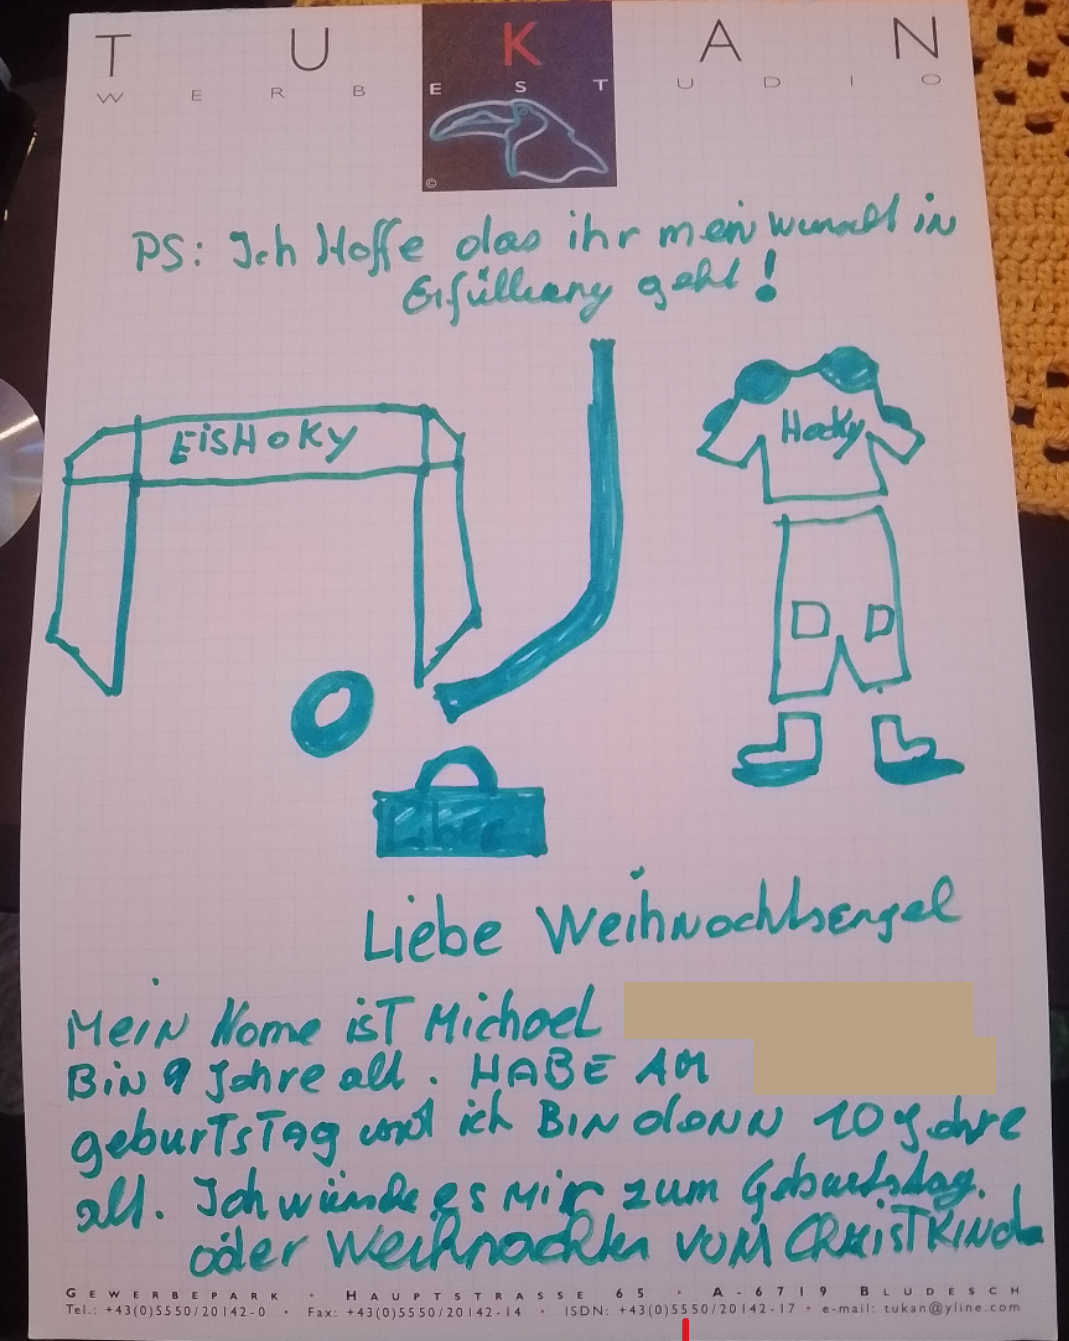 T U K A N
W E R B E S T U D I O
©
PS: Ich Hoffe das ihr mein wunsch in
Erfüllung geht!
EiSHoKy
Hocky
Liebe Weihnachtsengel
MEiN Name isT Michael
BiN 9 Jahre alt. HABE AM
geburTsTag und ich BiN daNN 10 Jahre
alt. Ich wünsche es Mir zum Geburtstag.
oder Weihnachten voM CHRiSTKiNd
GEWERBEPARK · HAUPTSTRASSE 65 · A-6719 BLUDESCH
Tel.: +43(0)5550/20142-0 · Fax: +43(0)5550/20142-14 · ISDN: +43(0)5550/20142-17 · e-mail: tukan@yline.com